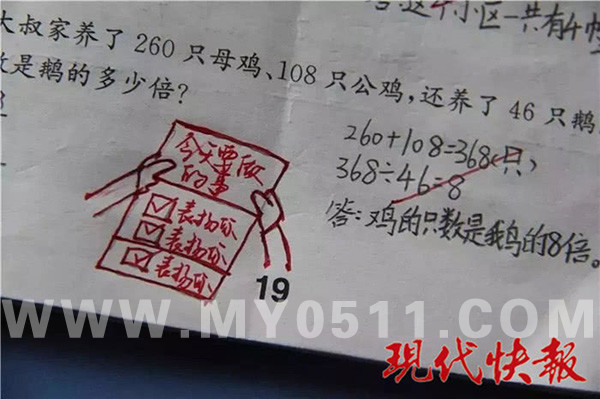 这个小区一共有4幢
大叔家养了 260 只母鸡、108 只公鸡，还养了 46 只鹅
数是鹅的多少倍？
260+108=368(只)
368÷46=8
答：鸡的只数是鹅的8倍。
今天要做
的事
表扬你
表扬你
表扬你
19
WWW.MY0511.COM
现代快報